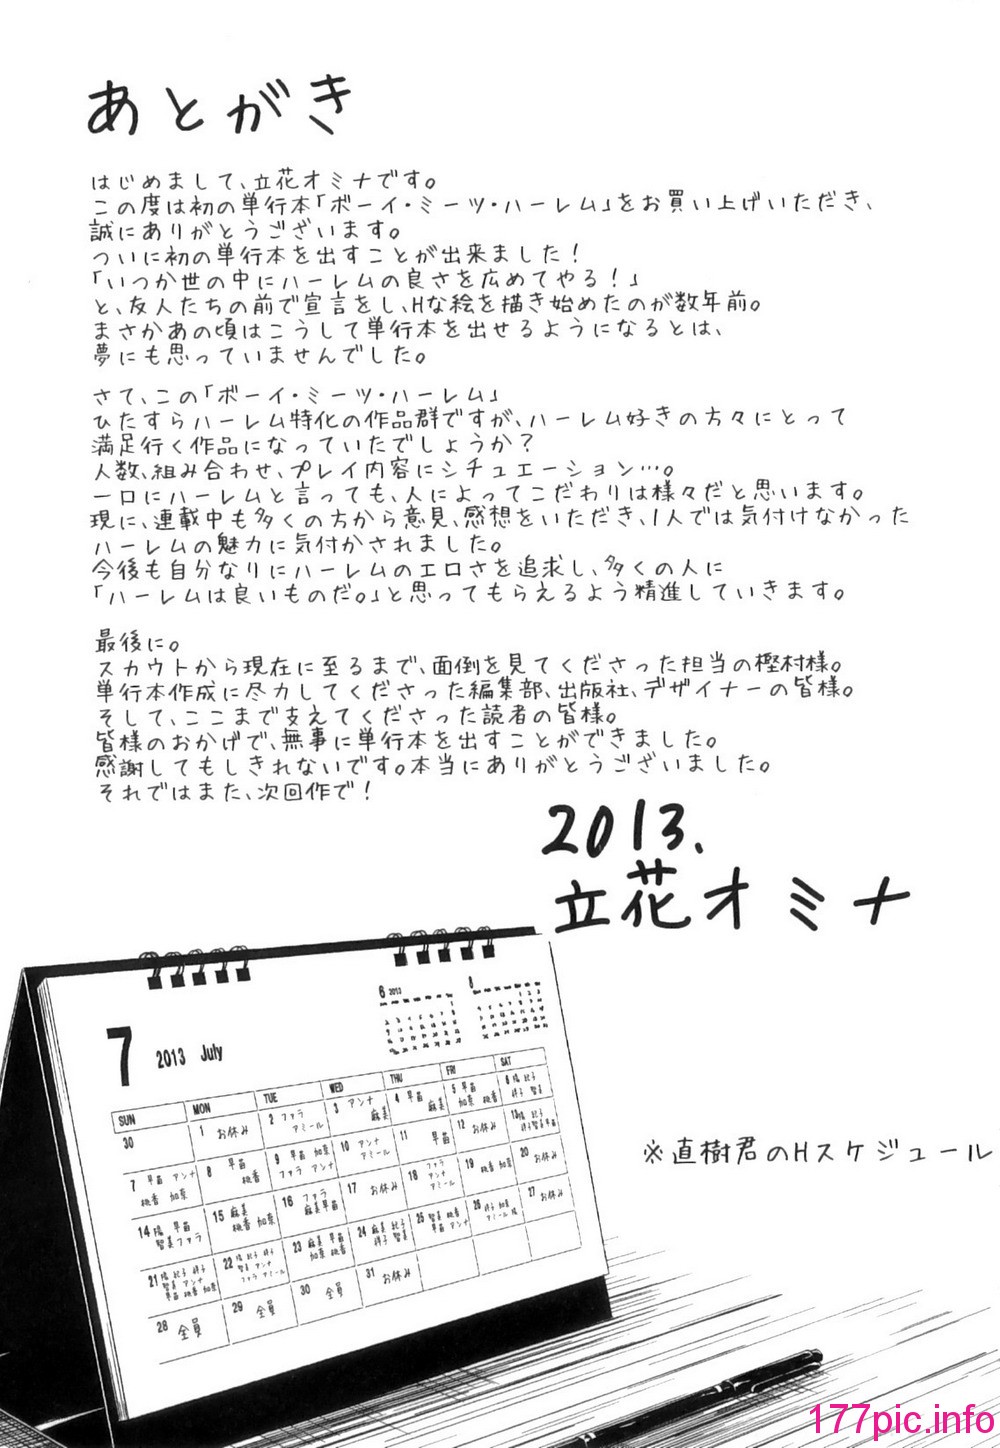 あとがき
はじめまして、立花オミナです。
この度は初の単行本「ボーイ・ミーツ・ハーレム」をお買い上げいただき、
誠にありがとうございます。
ついに初の単行本を出すことが出来ました！
「いつか世の中にハーレムの良さを広めてやる！」
と、友人たちの前で宣言をし、Hな絵を描き始めたのが数年前。
まさかあの頃はこうして単行本を出せるようになるとは、
夢にも思っていませんでした。
さて、この「ボーイ・ミーツ・ハーレム」
ひたすらハーレム特化の作品群ですが、ハーレム好きの方々にとって
満足行く作品になっていたでしょうか？
人数、組み合わせ、プレイ内容にシチュエーション…。
一口にハーレムと言っても、人によってこだわりは様々だと思います。
現に、連載中も多くの方から意見、感想をいただき、1人では気付けなかった
ハーレムの魅力に気付かされました。
今後も自分なりにハーレムのエロさを追求し、多くの人に
「ハーレムは良いものだ。」と思ってもらえるよう精進していきます。
最後に。
スカウトから現在に至るまで、面倒を見てくださった担当の樫村様。
単行本作成に尽力してくださった編集部、出版社、デザイナーの皆様。
そして、ここまで支えてくださった読者の皆様。
皆様のおかげで、無事に単行本を出すことができました。
感謝してもしきれないです。本当にありがとうございました。
それではまた、次回作で！
2013.
立花オミナ
7 2013 July
6 2013
8
SUN MON TUE WED THU FRI SAT
30 1 お休み 2 ファラ アミール 3 アンナ 麻美 4 早苗 麻美 5 早苗 加奈 桃香 6
7 早苗 アンナ 桃香 加奈 8 早苗 桃香 9 早苗 加奈 ファラ アンナ 10 アンナ アミール 11 早苗 12 お休み 13
14 早苗 ファラ 15 麻美 桃香 加奈 16 ファラ 麻美 早苗 17 お休み 18 ファラ アンナ アミール 19 桃香 加奈 20 お休み
21 22 23 麻美 早苗 加奈 桃香 24 25 26 27 お休み
28 全員 29 全員 30 全員 31 お休み
※直樹君のHスケジュール
177pic.info